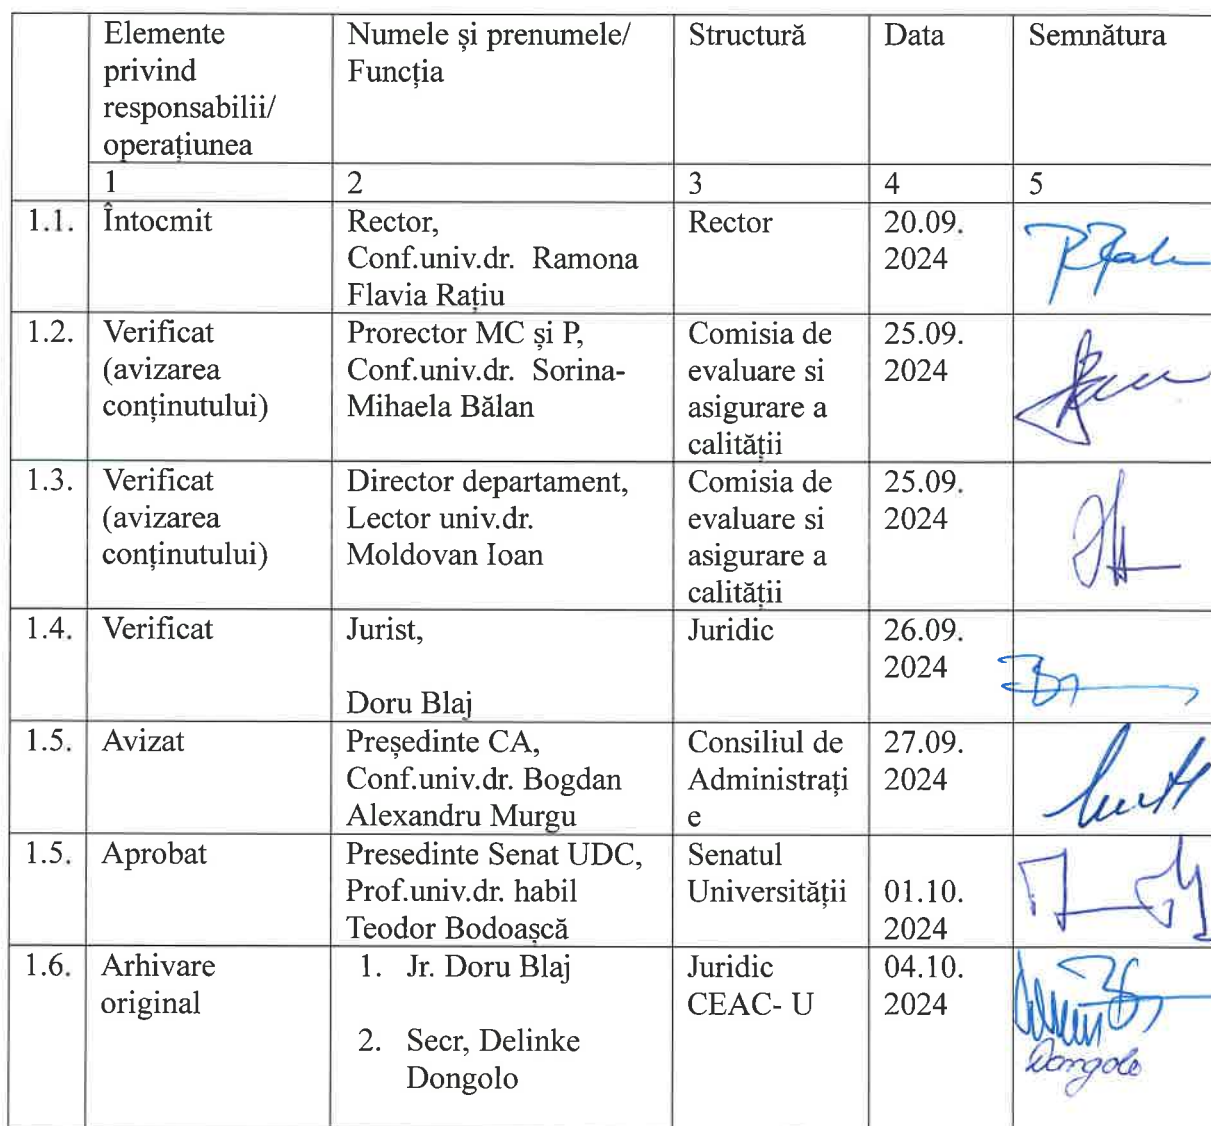 Elemente
privind
responsabilii/
operațiunea
Numele și prenumele/
Funcția
Structură
Data
Semnătura
1
2
3
4
5
1.1.
Întocmit
Rector,
Conf.univ.dr. Ramona
Flavia Rațiu
Rector
20.09.
2024
1.2.
Verificat
(avizarea
conținutului)
Prorector MC și P,
Conf.univ.dr. Sorina-
Mihaela Bălan
Comisia de
evaluare si
asigurare a
calității
25.09.
2024
1.3.
Verificat
(avizarea
conținutului)
Director departament,
Lector univ.dr.
Moldovan Ioan
Comisia de
evaluare si
asigurare a
calității
25.09.
2024
1.4.
Verificat
Jurist,
Doru Blaj
Juridic
26.09.
2024
1.5.
Avizat
Președinte CA,
Conf.univ.dr. Bogdan
Alexandru Murgu
Consiliul de
Administrați
e
27.09.
2024
1.5.
Aprobat
Presedinte Senat UDC,
Prof.univ.dr. habil
Teodor Bodoașcă
Senatul
Universității
01.10.
2024
1.6.
Arhivare
original
1. Jr. Doru Blaj
2. Secr, Delinke
Dongolo
Juridic
CEAC- U
04.10.
2024
Dongolo